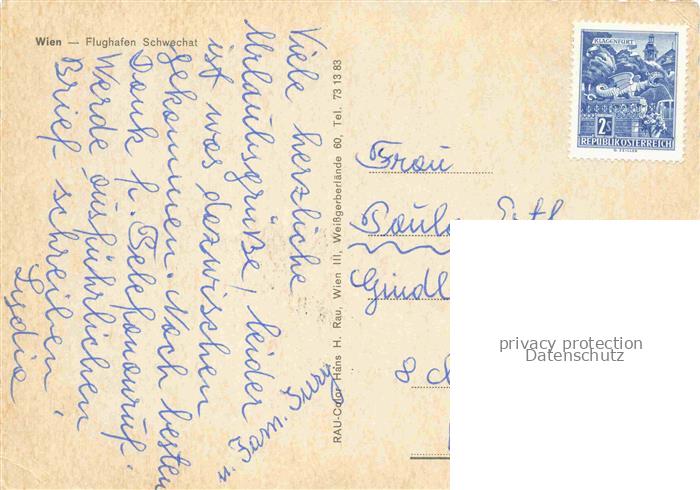 Wien — Flughafen Schwechat
Viele herzliche
Urlaubsgrüße, leider
ist was dazwischen
gekommen. Noch besten
Dank f. Telefonanruf.
Werde ausführlichen
Brief schreiben.
Lydia
RAU-Color Hans H. Rau, Wien III, Weißgerberlände 60, Tel. 73 13 83
KLAGENFURT
2S
REPUBLIK ÖSTERREICH
Frau
Paula
Gindl
8
privacy protection
Datenschutz